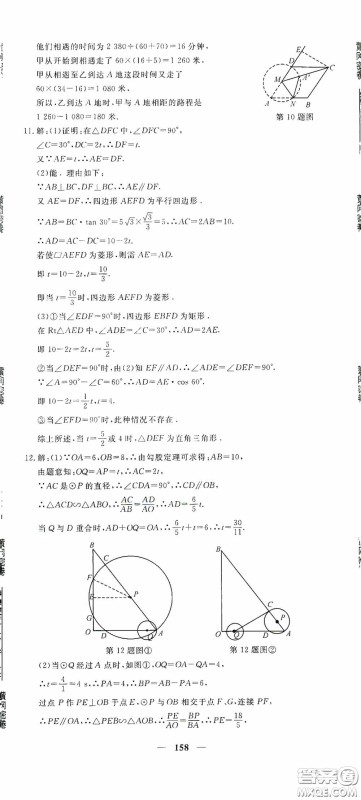 他们相遇的时间为 2 380÷(60+70)=16分钟,
甲从开始至相遇走了 60×(16+5)=1 260米,
甲从相遇至乙到达 A 地这段时间又走了
60×(34-16)=1 080米.
所以,乙到达 A 地时,甲与 A 地相距的路程是
1 260-1 080=180米.
第10题图
11.解:(1)证明:在△DFC中,∠DFC=90°,
∠C=30°,DC=2t,∴DF=t.
又∵AE=t,∴AE=DF.
(2)能.理由如下:
∵AB⊥BC,DF⊥BC,∴AE∥DF.
又AE=DF,∴四边形AEFD为平行四边形.
∵AB=BC·tan 30°=5√3×√3/3=5,∴AC=2AB=10.
∴AD=AC-DC=10-2t.
若使□AEFD为菱形,则需AE=AD.
即t=10-2t,t=10/3.
即当t=10/3时,四边形AEFD为菱形.
(3)①当∠EDF=90°时,四边形EBFD为矩形.
在Rt△AED中,∠ADE=∠C=30°,∴AD=2AE.
即10-2t=2t,t=5/2.
②当∠DEF=90°时,由(2)知EF∥AD,∴∠ADE=∠DEF=90°.
∵∠A=90°-∠C=60°,∴AD=AE·cos 60°.
即10-2t=1/2t,t=4.
③当∠EFD=90°时,此种情况不存在.
综上所述,当t=5/2或4时,△DEF为直角三角形.
12.解:(1)∵OA=6,OB=8,∴由勾股定理可求得:AB=10,
由题意知:OQ=AP=t,∴AC=2t.
∵AC是⊙P的直径,∴∠CDA=90°,∴CD∥OB,
∴△ACD∽△ABO,∴AC/AB=AD/AO,∴AD=6/5t.
当Q与D重合时,AD+OQ=OA,∴6/5t+t=6,∴t=30/11.
第12题图① 第12题图②
(2)当⊙Q经过A点时,如图①,OQ=OA-QA=4,
∴t=4/1=4 s,∴PA=4,∴BP=AB-PA=6,
过点P作PE⊥OB于点E,⊙P与OB相交于点F、G,连接PF,
∴PE∥OA,∴△PEB∽△AOB,∴PE/OA=BP/BA,∴PE=18/5,
158